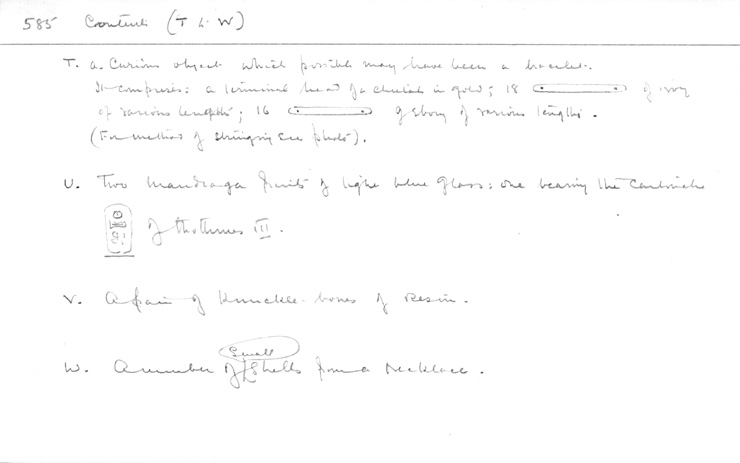 585 Contents (T to W)
T. a. Curious object which possibly may have been a bracelet.
It comprises: a terminal head of a cheetah in gold; 18 of ivory
of various lengths; 16 of ebony of various lengths.
(For method of stringing see photo).
U. Two mandraga fruits of light blue glass: one bearing the Cartouche
of Thothmes III.
V. A pair of Knuckle-bones of Resin.
W. A number of small Shells from a Necklace.